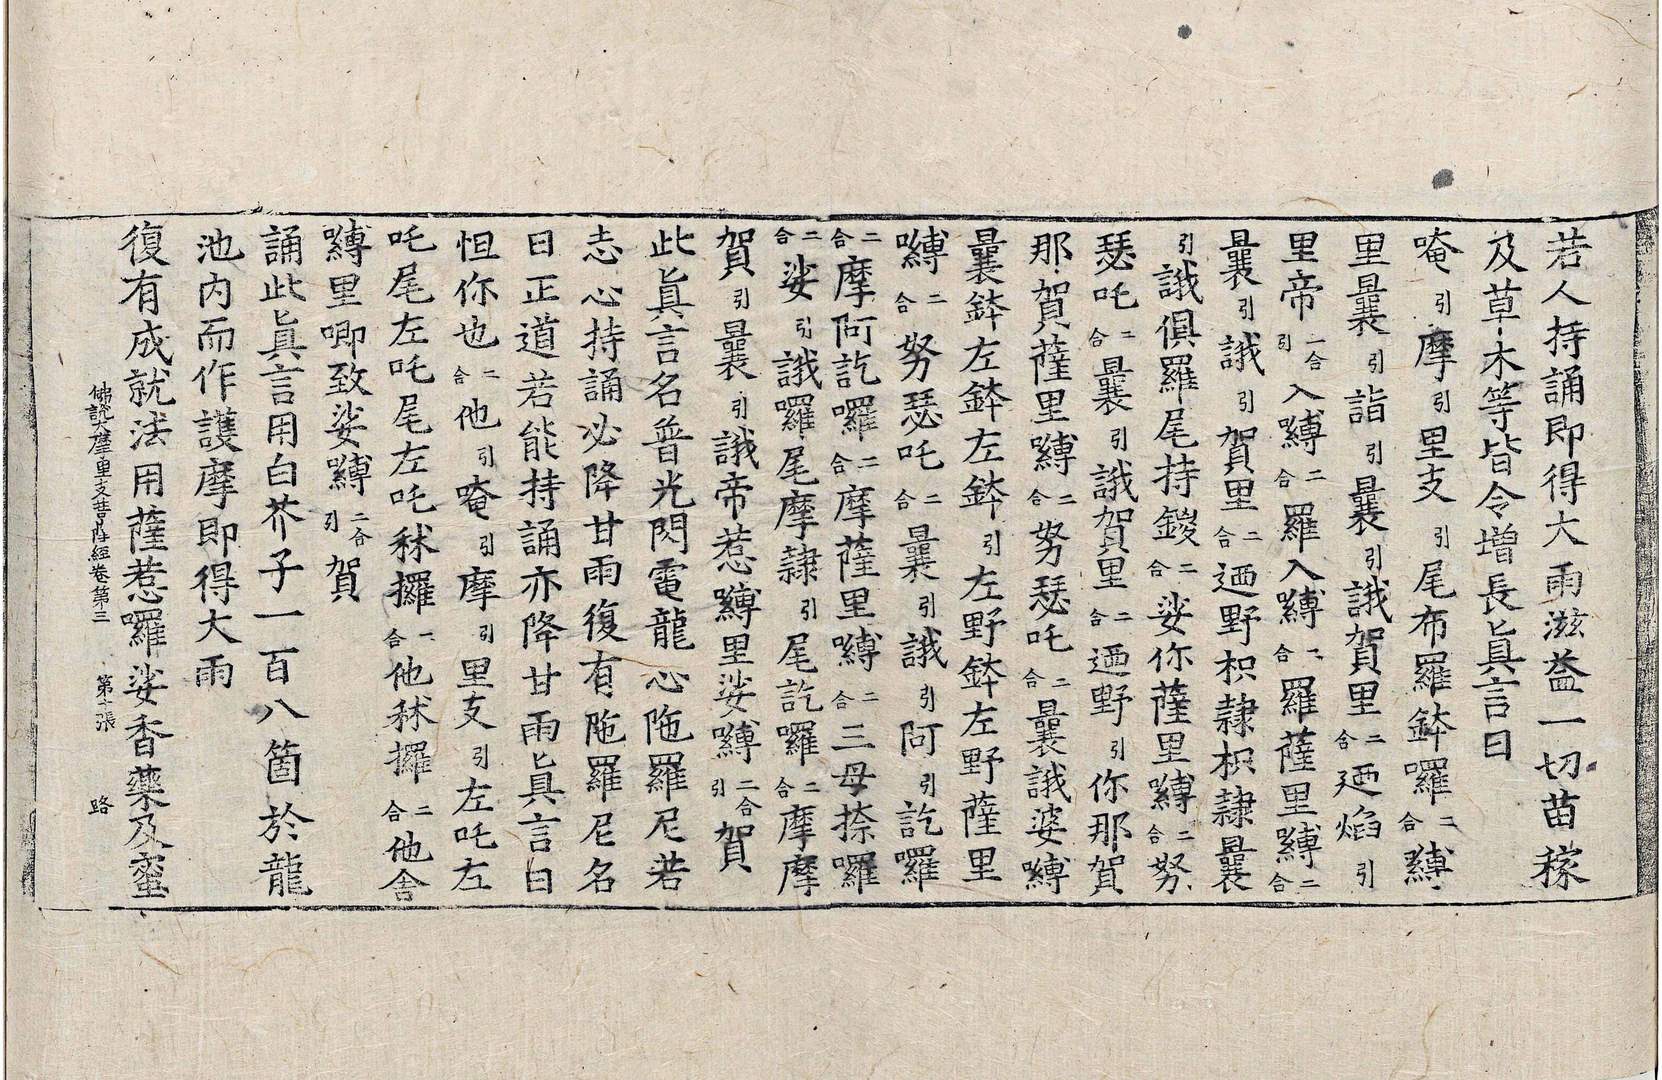 若人持誦即得大雨滋益一切苗稼
及草木等皆令增長眞言曰
唵引摩引里支引尾布羅鉢囉二合縛
里曩引詣引曩引誐賀里二合廼焰引
里帝一合引入縛二合羅入縛二合羅薩里縛二合
曩引誐引賀里二合廼野枳隷枳隷曩
引誐俱羅尾持鑁二合娑你薩里縛二合努
瑟吒二合曩引誐賀里二合廼野引你那賀
那賀薩里縛二合努瑟吒二合曩誐婆縛
曩鉢左鉢左鉢引左野鉢左野薩里
縛二合努瑟吒二合曩引誐引阿引訖羅
二合摩阿訖囉二合摩薩里縛二合三母捺囉
二合娑引誐囉尾摩隷引尾訖囉二合摩摩
賀引曩引誐帝惹縛里娑縛二合引賀
此眞言名普光閃電龍心陁羅尼若
志心持誦必降甘雨復有陁羅尼名
日正道若能持誦亦降甘雨眞言曰
怛你也二合他引唵引摩引里支引左吒左
吒尾左吒尾左吒秫攞二合他秫攞二合他舍
縛里唧致娑縛二合引賀
誦此眞言用白芥子一百八箇於龍
池內而作護摩即得大雨
復有成就法用薩惹囉娑香藥及蜜
佛說大摩里支菩薩經卷第三　第十張　路